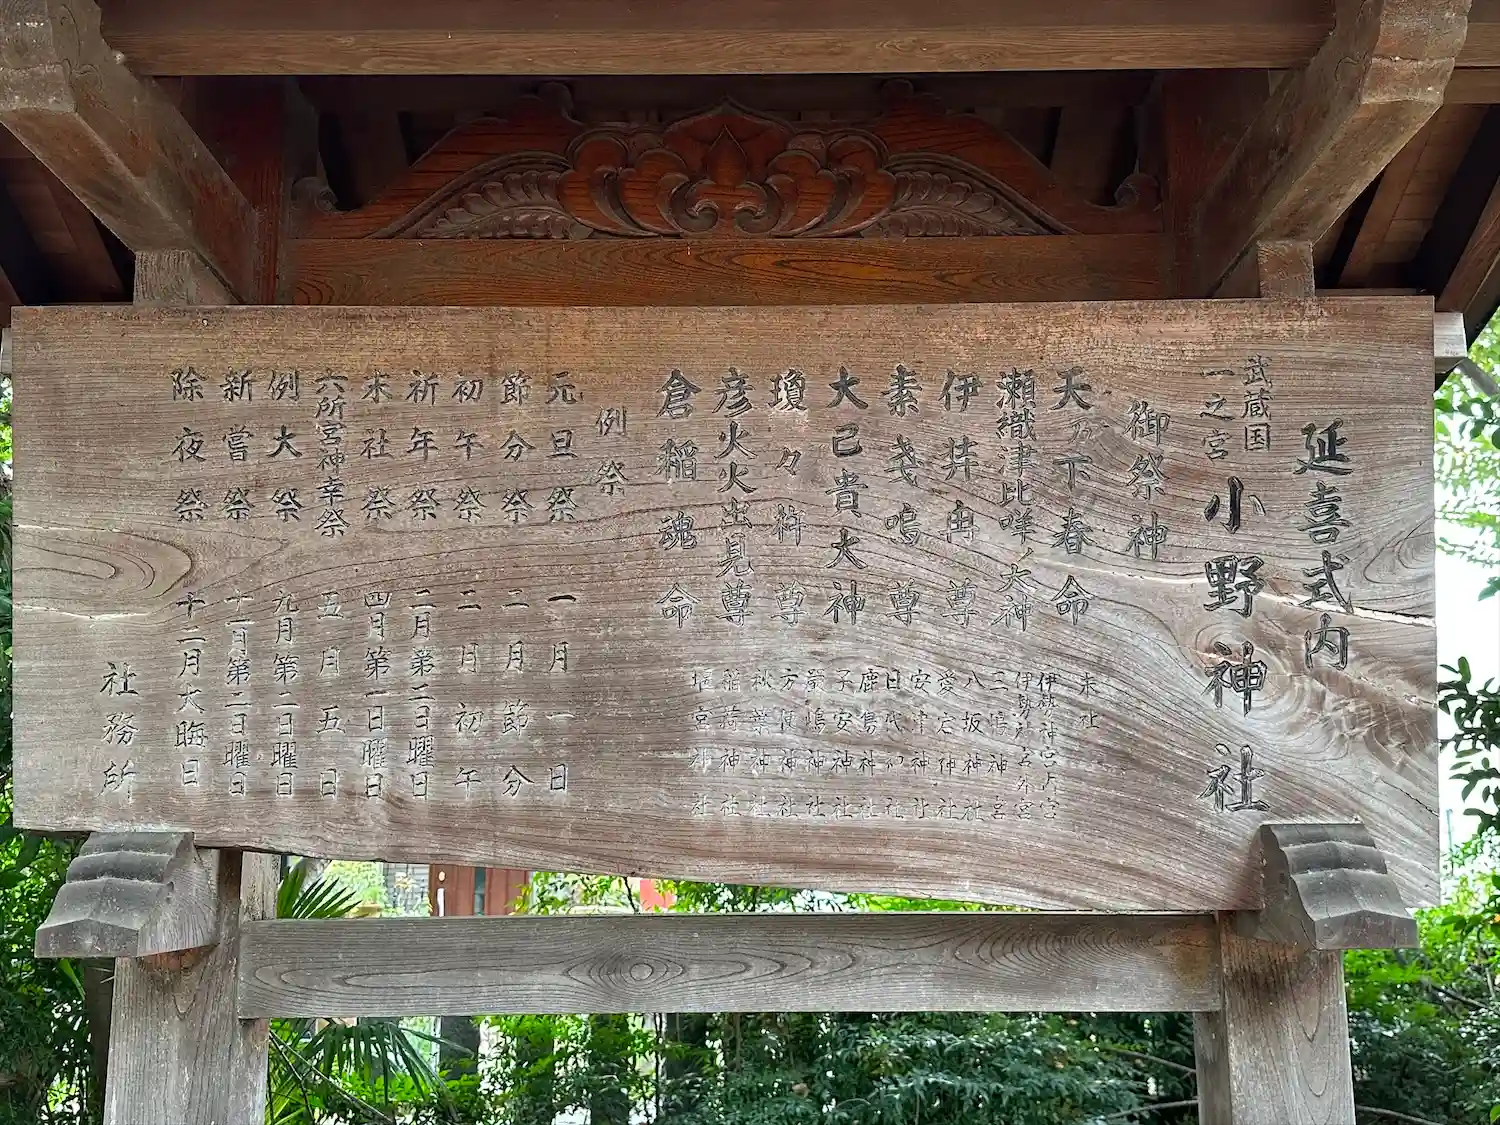 延喜式内
武蔵国
一之宮
小野神社
御祭神
天乃下春命
瀬織津比咩ノ大神
伊弉冉尊
素戔嗚尊
大己貴大神
瓊々杵尊
彦火火出見尊
倉稲魂命
末社
伊勢神宮内宮
伊勢神宮外宮
三嶋神宮
八坂神社
愛宕神社
安津神社
日代神社
鹿島神社
子安神社
厳嶋神社
方便神社
秋葉神社
稲荷神社
堰宮神社
例祭
元旦祭 一月一日
節分祭 二月節分
初午祭 二月初午
祈年祭 二月第二日曜日
末社祭 四月第一日曜日
六所宮神幸祭 五月五日
例大祭 九月第二日曜日
新嘗祭 十一月第二日曜日
除夜祭 十二月大晦日
社務所